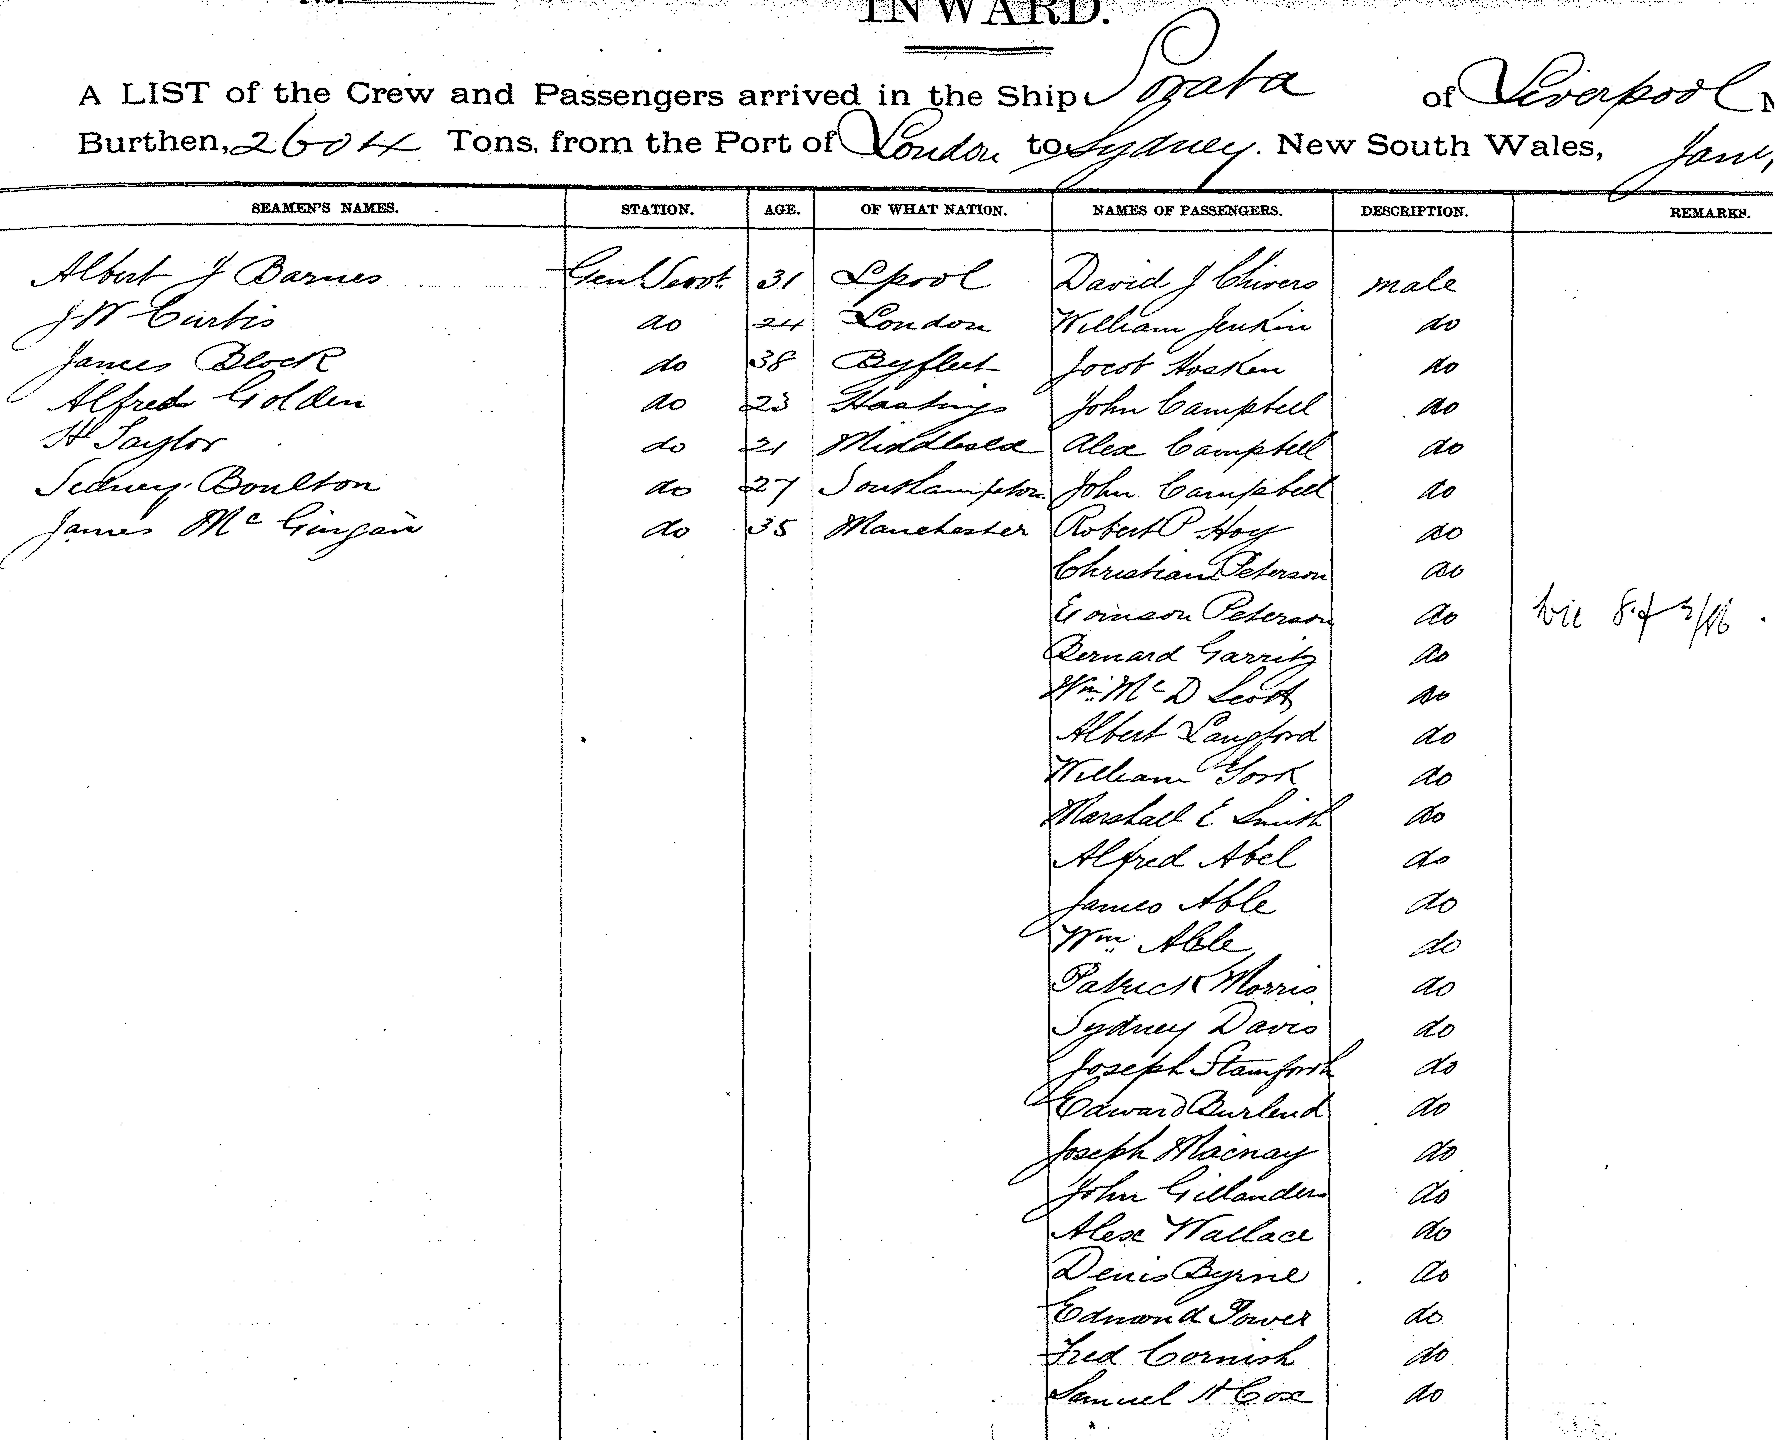 No.
INWARD.
A LIST of the Crew and Passengers arrived in the Ship Sorata of Liverpool
Burthen, 2604 Tons, from the Port of London to Sydney. New South Wales, Jany,
SEAMEN'S NAMES. STATION. AGE. OF WHAT NATION. NAMES OF PASSENGERS. DESCRIPTION. REMARKS.
Albert J Barnes Genl Servt. 31 Lpool David J Chivers male
J W Curtis do 24 London William Jenkin do
James Block do 38 Byfleet Hosken do
Alfred Golden do 23 Hastings John Campbell do
H Taylor do 21 Alex Campbell do
Sidney Boulton do 27 Southampton John Campbell do
James Mc Gingan do 35 Manchester Robert P Hoy do
Christian Peterson do
Peterson do
Bernard Garrity do
Wm. Mc D Scott do
Albert Langford do
William York do
Marshall E Smith do
Alfred Abel do
James Able do
Wm. Able do
Patrick Morris do
Sydney Davis do
Joseph Stamforth do
Edward Burlend do
Joseph do
John Gillanders do
Alex Wallace do
Denis Byrne do
Edmond Power do
Fred Cornish do
Samuel H Cox do